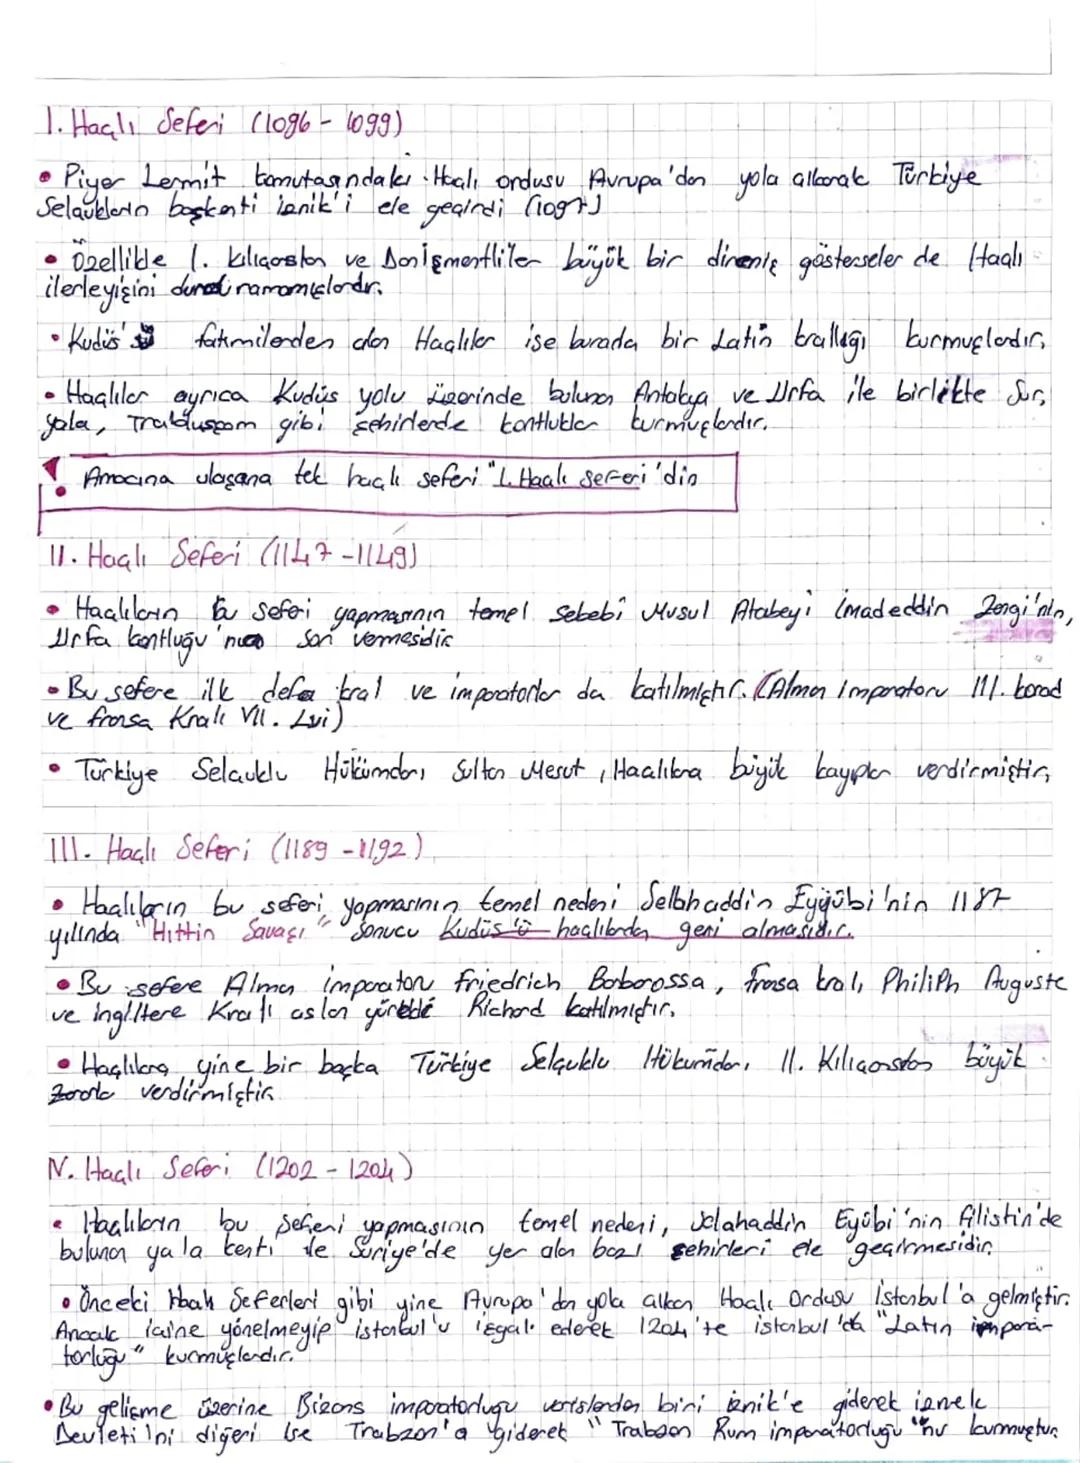 I. Haçlı Seferi (1096 - 1099)
• Piyer Lermit komutasındaki Haçlı ordusu Avrupa'dan yola çıkarak Türkiye
Selçukluların başkenti iznik'i ele geçirdi (1097)
• Özellikle I. kılıçarslan ve Danişmentliler büyük bir direniş gösterseler de Haçlı
ilerleyişini durduramamışlardır.
• Kudüs'ü fatımilerden alan Haçlılar ise burada bir Latin krallığı kurmuşlardır,
• Haçlılar ayrıca Kudüs yolu üzerinde bulunan Antakya ve Urfa ile birlikte Sur,
yafa, Trabluşşam gibi şehirlerde kontluklar kurmuşlardır.
! Amacına ulaşana tek haçlı seferi "I. Haçlı seferi'din
II. Haçlı Seferi (1147 - 1149)
• Haçlıların bu seferi yapmasının temel sebebi Musul Atabeyi imadeddin Zengi'nin,
Urfa kontluğu'na son vermesidir
• Bu sefere ilk defa kral ve imparatorlar da katılmıştır. (Alman imparatoru III. konrad
ve fransa Kralı VII. Lui)
• Türkiye Selçuklu Hükümdarı Sultan Mesut, Haçlılara büyük kayıplar verdirmiştir,
III. Haçlı Seferi (1189 - 1192)
• Haçlıların bu seferi yapmasının temel nedeni Selahaddin Eyyübi'nin 1187
yılında "Hıttin Savaşı" sonucu Kudüs'ü haçlılardan geri almasıdır.
• Bu sefere Alman imparatoru friedrich Barborossa, fransa kralı Philiph Auguste
ve ingiltere Kralı aslan yürekli Richard katılmıştır.
• Haçlılara yine bir başka Türkiye Selçuklu Hükümdarı II. Kılıçarslan büyük
zararla verdirmiştir
IV. Haçlı Seferi (1202 - 1204)
• Haçlıların bu seferi yapmasının temel nedeni, Selahaddin Eyübi'nin filistin'de
bulunan yafa kenti ile Suriye'de yer alan bazı şehirleri ele geçirmesidir.
• Önceki Haçlı Seferleri gibi yine Avrupa'dan yola çıkan Haçlı Ordusu İstanbul'a gelmiştir.
Ancak içine yönelmeyip istanbul'u işgal ederek 1204'te istanbul'da "Latin impara-
torluğu" kurmuşlardır.
• Bu gelişme üzerine Bizans imparatorluğu varislerden biri iznik'e giderek iznik
Devleti'ni diğeri ise Trabzon'a giderek "Trabzon Rum imparatorluğu"nu kurmuştur.